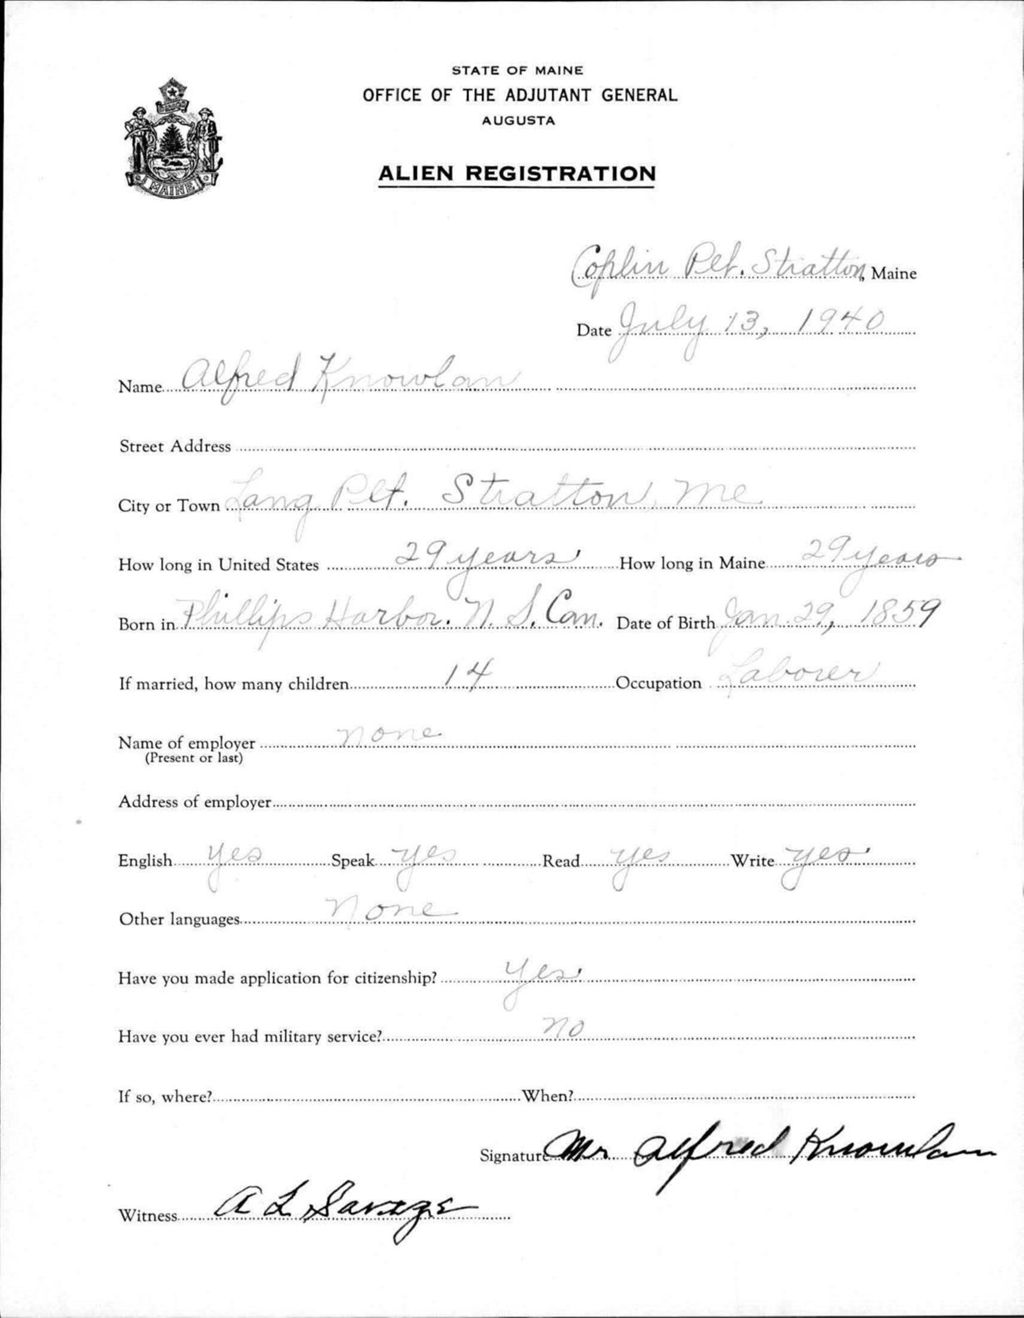 STATE OF MAINE
OFFICE OF THE ADJUTANT GENERAL
AUGUSTA
ALIEN REGISTRATION
MAINE
Coplin Plt. Stratton, Maine
Date July 13, 1940
Name Alfred Knowlan
Street Address
City or Town Lang Plt. Stratton, Me
How long in United States 29 years How long in Maine 29 years
Born in Phillips Harbor. N. S. Can. Date of Birth Jan. 29, 1859
If married, how many children 14 Occupation Laborer
Name of employer none
(Present or last)
Address of employer
English yes Speak yes Read yes Write yes
Other languages None
Have you made application for citizenship? Yes
Have you ever had military service? no
If so, where? When?
Signature Mr Alfred Knowlan
Witness A L Savage